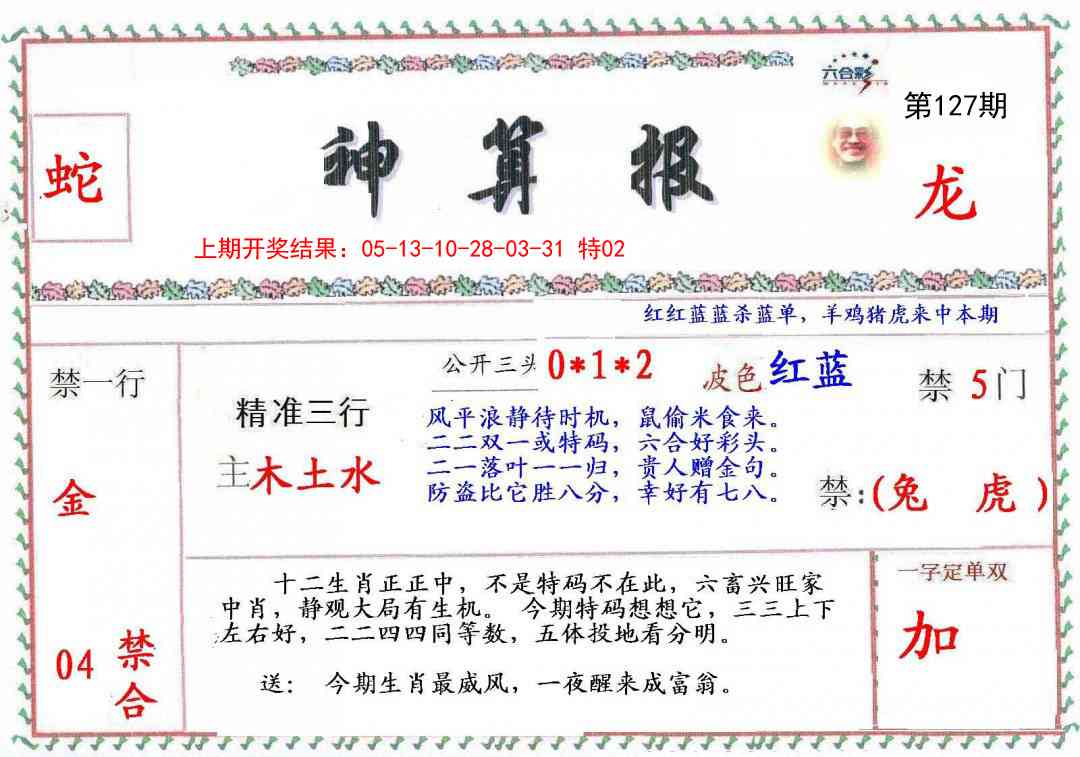 六合彩
第127期
蛇
神算报
龙
上期开奖结果：05-13-10-28-03-31 特02
红红蓝蓝杀蓝单，羊鸡猪虎来中本期
禁一行
公开三头
0*1*2
波色 红蓝
禁 5 门
精准三行
风平浪静待时机，鼠偷米食来。
二二双一或特码，六合好彩头。
主木土水
二一落叶一一归，贵人赠金句。
金
防盗比它胜八分，幸好有七八。
禁:(兔 虎)
一字定单双
十二生肖正正中，不是特码不在此，六畜兴旺家
中肖，静观大局有生机。 今期特码想想它，三三上下
左右好，二二四四同等数，五体投地看分明。
加
04
禁合
送： 今期生肖最威风，一夜醒来成富翁。